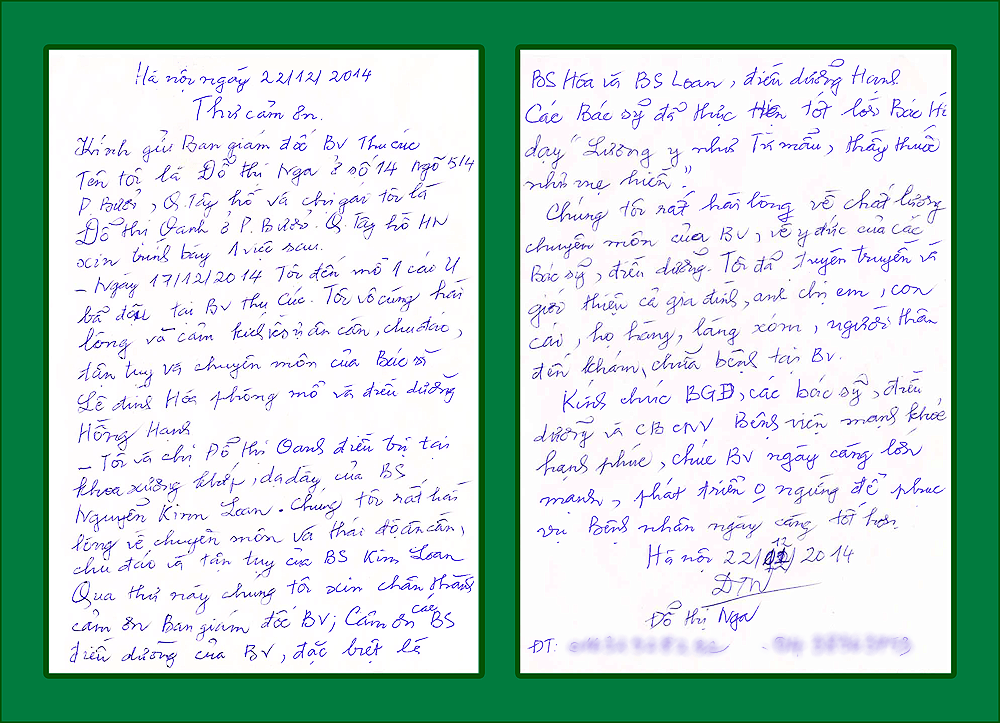 Hà nội ngày 22/12/2014
Thư cảm ơn.
Kính gửi Ban giám đốc BV Thu cúc
Tên tôi là Đỗ thị Nga ở số 14 Ngõ 514
P. Bưởi, Q. Tây hồ và chị gái tôi là
Đỗ thị Oanh ở P. Bưởi. Q. Tây hồ HN
xin trình bày 1 việc sau.
- Ngày 17/12/2014 Tôi đến mổ 1 cái U
bã đậu tại BV thu Cúc. Tôi vô cùng hài
lòng và cảm kích ân cần, chu đáo,
tận tuỵ và chuyên môn của Bác sĩ
Lê đình Hóa phòng mổ và điều dưỡng
Hồng Hạnh
- Tôi và chị Đỗ thị Oanh điều trị tại
khoa xương khớp, dạ dày, của BS
Nguyễn Kim Loan. Chúng tôi rất hài
lòng về chuyên môn và thái độ ân cần,
chu đáo và tận tuỵ của BS Kim Loan
Qua thư này chúng tôi xin chân thành
cảm ơn Ban giám đốc BV; Cảm ơn các BS
điều dưỡng của BV, đặc biệt là
BS Hóa và BS Loan, điều dưỡng Hạnh.
Các Bác sỹ đã thực tốt lời Bác Hồ
dạy "Lương y như Từ mẫu, thầy thuốc
như mẹ hiền."
Chúng tôi rất hài lòng về chất lượng
chuyên môn của BV, về y đức của các
Bác sỹ, điều dưỡng. Tôi đã truyên truyền và
giới thiệu cả gia đình, anh chị em, con
cái, họ hàng, láng xóm, người thân
đến khám, chữa bệnh tại BV.
Kính chúc BGĐ, các bác sỹ, điều
dưỡng và CBCNV Bệnh viện mạnh khỏe
hạnh phúc, chúc BV ngày càng lớn
mạnh, phát triển o ngừng để phục
vụ Bệnh nhân ngày càng tốt hơn.
Hà nội 22/12/2014
ĐTN
Đỗ thị Nga
ĐT: